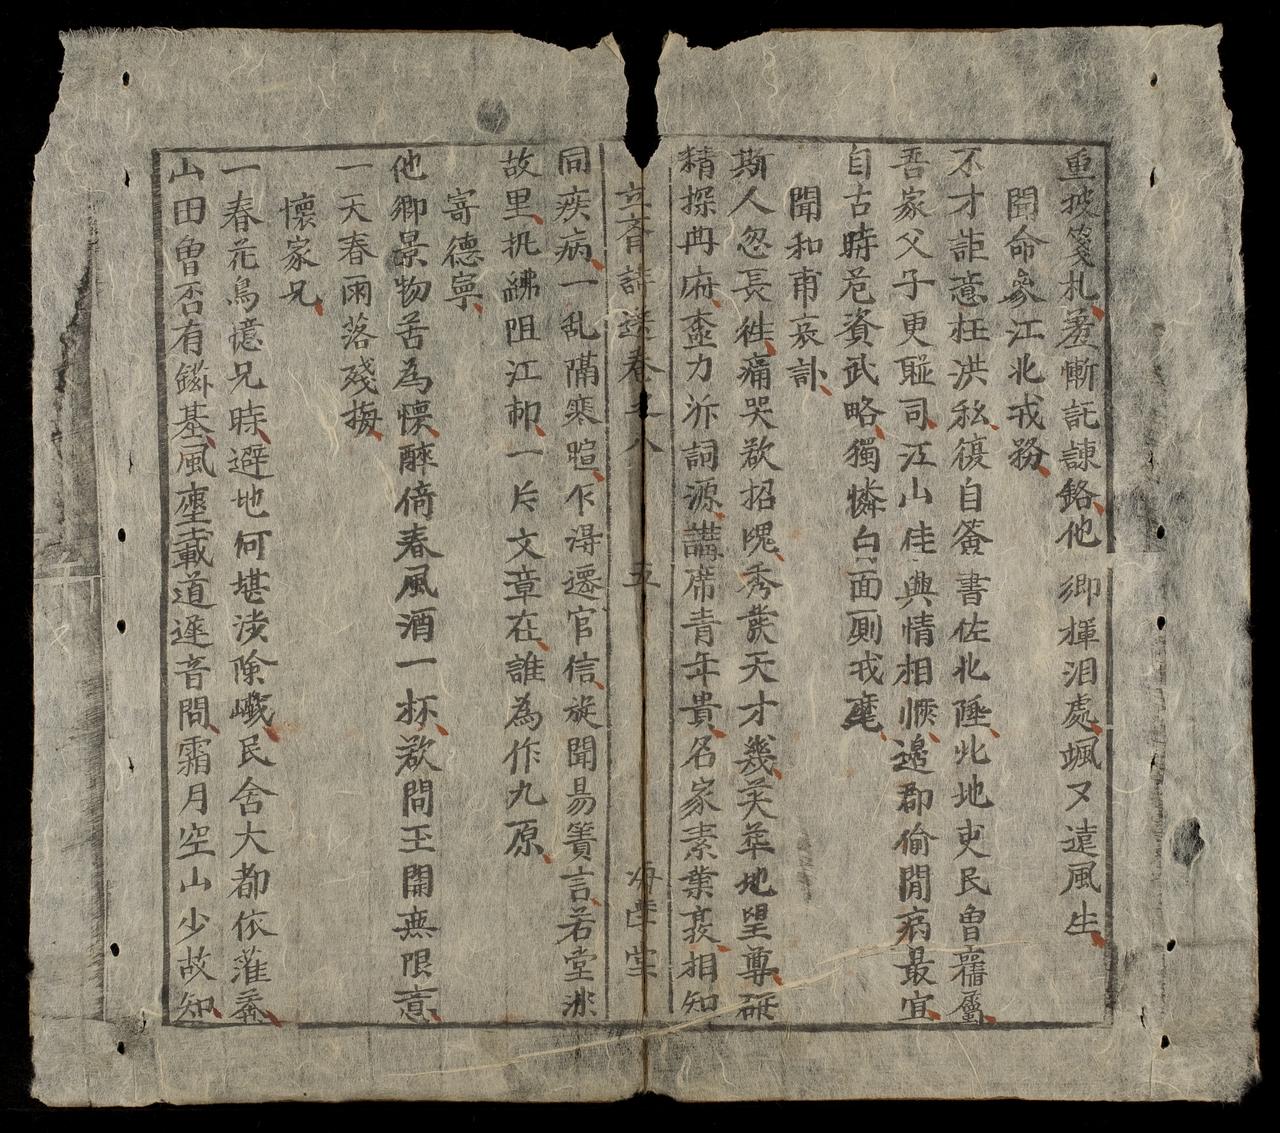 重披箋札羞慚託諫鉻他鄉揮泪處颯又遠風生
聞命參江北戎務
不才詎意枉洪私復自簽書佐北陲北地吏民曾舊屬
吾家父子更聯司江山佳興情相愜邊郡偷閒病最宜
自古時危資武略獨憐白面厠戎麾
聞和甫哀訃
斯人忽長徃痛哭欲招魂秀發天才㡬英華地望尊研
精探冉府盡力泝詞源講席青年貴名家素業裒相知
立齋詩選卷之八 五 海崖堂
同疾病一乱隔寒暄乍淂遷官信旋聞易簀言若堂
故里執紼阻江邨一片文章在誰為作九原
寄德寧
他鄉景物苦為懷醉倚春風酒一杯欲問玉開無限意
一天春雨落殘梅
懷家兄
一春花鳥憶兄時避地何堪淩險巇民舍大都依藋
山田曾否有鎡基風塵載道遲音問霜月空山少故知